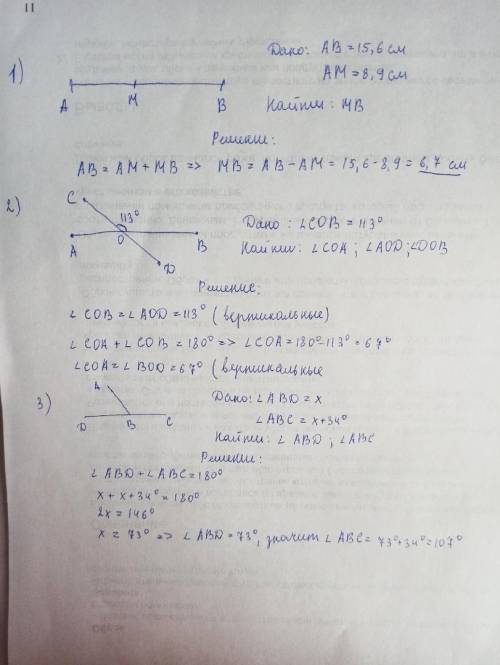 11
1)
Дано: AB = 15,6 см
AM = 8,9 см
A M B
Найти: MB
Решение:
AB = AM + MB => MB = AB - AM = 15,6 - 8,9 = 6,7 см
2)
C
113°
A O B
D
Дано: ∠COB = 113°
Найти: ∠COA; ∠AOD; ∠DOB
Решение:
∠COB = ∠AOD = 113° (вертикальные)
∠COA + ∠COB = 180° => ∠COA = 180° - 113° = 67°
∠COA = ∠BOD = 67° (вертикальные
3)
A
D B C
Дано: ∠ABD = x
∠ABC = x + 34°
Найти: ∠ABD; ∠ABC
Решение:
∠ABD + ∠ABC = 180°
x + x + 34° = 180°
2x = 146°
x = 73° => ∠ABD = 73°, значит ∠ABC = 73° + 34° = 107°